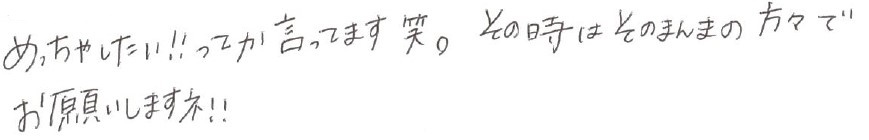 めっちゃしたい!!ってか言ってます笑。その時はそのまんまの方々で
お願いしますネ!!